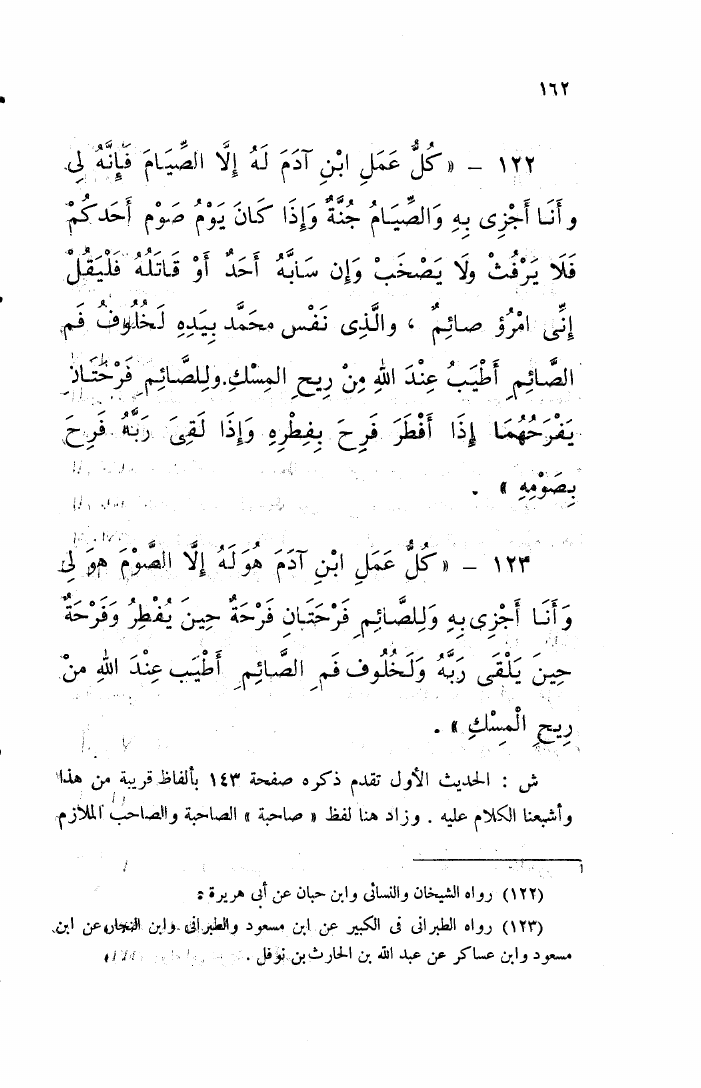 ١٦٢
١٢٢ – «كُلُّ عَمَلِ ابْنِ آدَمَ لَهُ إِلَّا الصِّيَامَ فَإِنَّهُ لِى
وأَنَا أَجْزِى بِهِ وَالصِّيَامُ جُنَّةٌ وَإِذَا كَانَ يَوْمُ صَوْمِ أَحَدِكُمْ
فَلَا يَرْفُثْ ولَا يَصْخَبْ وَإِن سَابَّهُ أَحَدٌ أَوْ قَاتَلَهُ فَلْيَقُلْ
إِنِّى امْرُؤ صائِمٌ ، والَّذِى نَفْس محمَّد بِيَدِهِ لَخُلُوفُ فَمِ
الصَّائِمِ أَطْيَبُ عِنْدَ اللهِ مِنْ رِيحِ المِسْكِ.ولِلصَّائِمِ فَرْحَتَانِ
يَفْرَحُهُمَا إِذَا أَفْطَرَ فَرِحَ بِفِطْرِهِ وَإِذَا لَقِىَ رَبَّهُ فَرِحَ
بِصَوْمِهِ » .
١٢٣ – «كُلُّ عَمَلِ ابْنِ آدَمَ هُوَ لَهُ إِلَّا الصَّوْمَ هوَ لِى
وَأَنَا أَجْزِى بِهِ وَلِلصَّائِمِ فَرْحَتَانِ فَرْحَةٌ حِينَ يُفْطِرُ وَفَرْحَةٌ
حِينَ يَلْقَى رَبَّهُ وَلَخُلُوف فَمِ الصَّائِمِ أَطْيَب عِنْدَ اللهِ منْ
رِيحِ الْمِسْكِ» .
ش : الحديث الأول تقدم ذكره صفحة ١٤٣ بألفاظ قريبة من هذا
وأشبعنا الكلام عليه . وزاد هنا لفظ « صاحبة » الصاحبة والصاحب الملازم
(١٢٢) رواه الشيخان والنسائى وابن حبان عن أبى هريرة :
(١٢٣) رواه الطبرانى فى الكبير عن ابن مسعود والطبرانى وابن النجار عن ابن
مسعود وابن عساكر عن عبد الله بن الحارث بن نوفل .